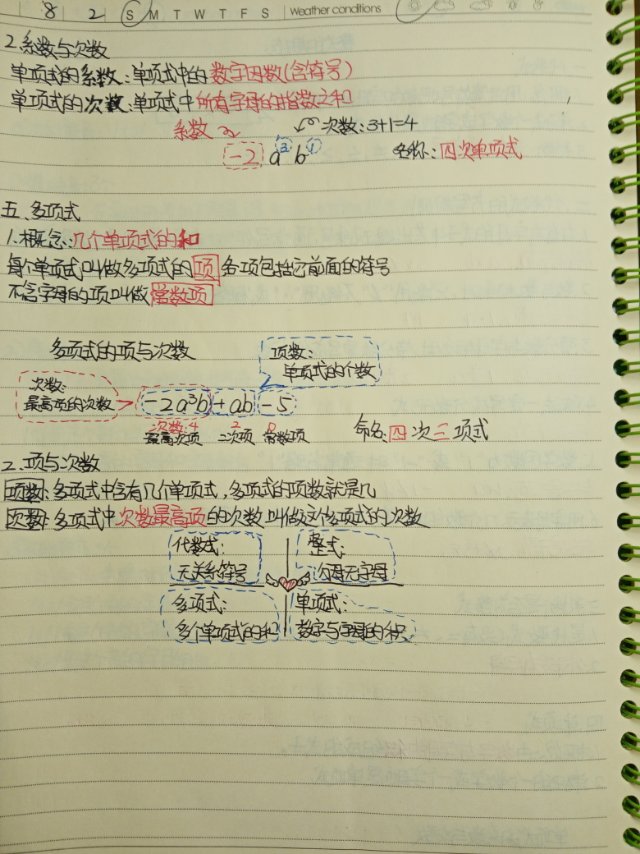 8 2 S M T W T F S Weather conditions
2.系数与次数
单项式的系数:单项式中的数字因数(含符号)
单项式的次数:单项式中所有字母的指数之和
系数 次数:3+1=4
-2 a³ b¹ 名称:四次单项式
五.多项式
1.概念:几个单项式的和
每个单项式叫做多项式的项 各项包括它前面的符号
不含字母的项叫做常数项
多项式的项与次数
项数:
单项式的个数
次数:
最高项的次数
-2a³b+ab-5
次数:4 2 0
最高次项 二次项 常数项
命名:四次三项式
2.项与次数
项数:多项式中含有几个单项式,多项式的项数就是几
次数:多项式中次数最高项的次数叫做这个多项式的次数
代数式: 整式:
无关系符号 分母无字母
多项式: 单项式:
多个单项式的和 数字与字母的积